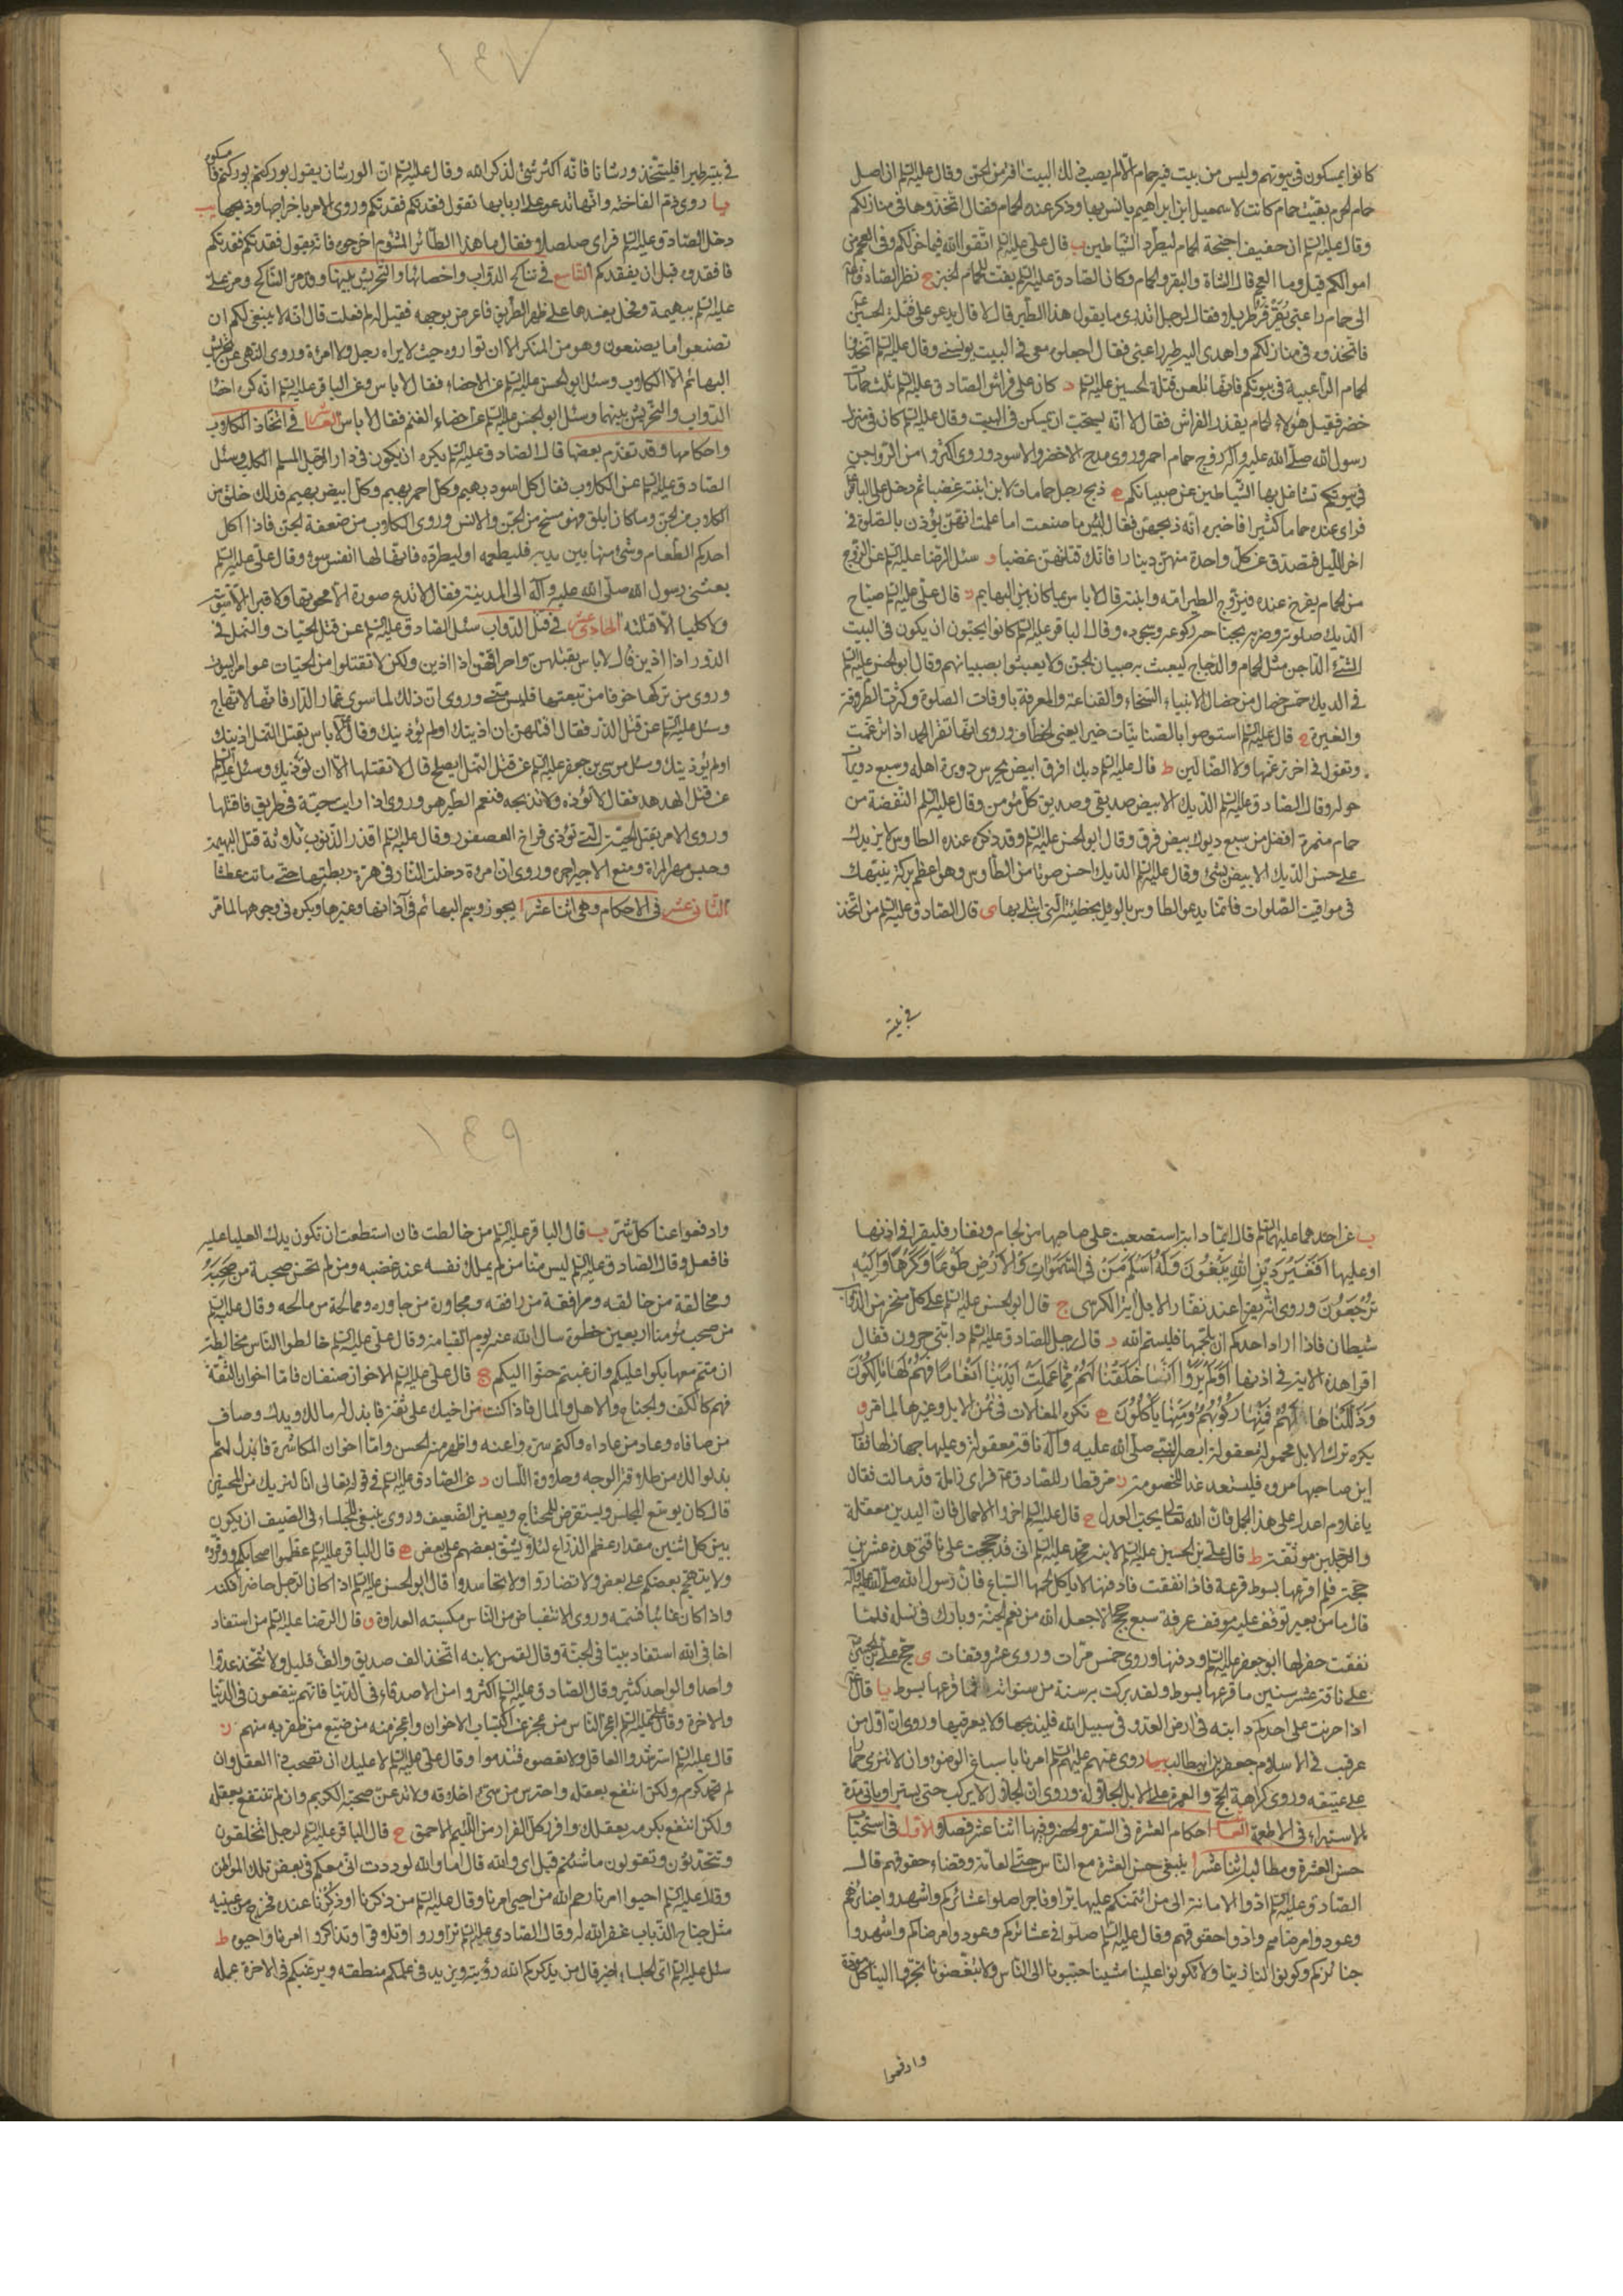 كانوا يمسكون في بيوتهم وليس من بيت فيه حمام الا لم يصب ذلك البيت آفة من الجن وقال عليه السلم ان اصل
حمام الحرم بقية حمام كانت لاسمعيل ابن ابراهيم يانس بها وذكر عنده الحمام فقال اتخذوها في منازلكم
وقال عليه السلم ان حفيف اجنحة الحمام ليطرد الشياطين ب قال علي عليه السلم اتقوا الله فيما خولكم وفي العجم من
اموالكم قيل وما العجم قال الشاة والبقر والحمام وكان الصادق عليه السلم يفت للحمام الخبز ج نظر الصادق
الى حمام راعبي يقرقر طويلا فقال لرجل اتدري ما يقول هذا الطير قال لا قال يدعو على قتلة الحسين
فاتخذوه في منازلكم واهدى اليه طير راعبي فقال اجعلوه معي في البيت يونسني وقال عليه السلم اتخذوا
الحمام الراعبية في بيوتكم فانها تلعن قتلة الحسين عليه السلم د كان على فراش الصادق عليه السلم ثلث حمامات
خضر فقيل هؤلاء الحمام يقذر الفراش فقال لا انه يستحب ان يسكن في البيت وقال عليه السلم كان في منزل
رسول الله صلى الله عليه وآله زوج حمام احمر وروى مدح الاخضر والاسود وروى اكثروا من الدواجن
في بيوتكم تشاغل بها الشياطين عن صبيانكم ه ذبح رجل حمامات لابن ابنته غضبا ثم دخل على الباقر
فراى عنده حماما كثيرا فاخبره انه ذبحهن فقال لبئس ما صنعت اما علمت انهن يؤذن بالصلوة في
اخر الليل فتصدق عن كل واحدة منهن دينارا فانك قتلتهن غضبا و سئل الرضا عليه السلم عن الزوج
من الحمام يفرخ عنده فيزوج الطير امه وابنته قال لا باس بما كان بين البهايم ز قال علي عليه السلم صياح
الديك صلوته وضربه بجناحه ركوعه وسجوده وقال الباقر عليه السلم كانوا يحبون ان يكون في البيت
الشئ الداجن مثل الحمام والدجاج ليعبث به صبيان الجن ولا يعبثوا بصبيانهم وقال ابو الحسن عليه السلم
في الديك خمس خصال من خصال الانبياء السخاء والقناعة والمعرفة باوقات الصلوة وكثرة الطروقة
والغيرة ح قال عليه السلم استوصوا بالصنائيات خيرا يعني الخطاف وروى انها تقرا الحمد اذا ترنمت
وتقول في اخر ترنمها ولا الضالين ط قال عليه السلم ديك افرق ابيض يحرس دويرة اهله وسبع دويرات
حوله وقال الصادق عليه السلم الديك الابيض صديقي وصديق كل مؤمن وقال عليه السلم النفضة من
حمام منمرة افضل من سبع ديوك بيض فرق وقال ابو الحسن عليه السلم وقد ذكر عنده الطاوس لا يزيدك
على حسن الديك الابيض بشئ وقال عليه السلم الديك احسن صوتا من الطاوس وهو اعظم بركة ينبهك
في مواقيت الصلوات فانما يدعو الطاوس بالويل بخطيئته التي ابتلي بها ى قال الصادق عليه السلم من اتخذ
في بيته
١٤٧
في بيته طيرا فليتخذ ورشانا فانه اكثر شئ لذكر الله وقال عليه السلم ان الورشان يقول بوركتم بوركتم فامسكوه
يا روى ذم الفاختة وانها تدعو على اربابها تقول فقدتكم فقدتكم وروى الامر باخراجها وذبحها يب
دخل الصادق عليه السلم فراى صلصلا فقال ما هذا الطائر المشئوم اخرجوه فانه يقول فقدتكم فقدتكم
فافقدوه قبل ان يفقدكم التاسع في نتاج الدواب واخصائها والتحريش بينها ومر علي
عليه السلم ببهيمة وفحل يفسدها على ظهر الطريق فاعرض بوجهه فقيل له لم فعلت قال انه لا ينبغي لكم ان
تصنعوا ما يصنعون وهو من المنكر الا ان تواروه حيث لا يراه رجل ولا امرءة وروى النهي عن تحريش
البهائم الا الكلاب وسئل ابو الحسن عليه السلم عن الاخصاء فقال لا باس وعن الباقر عليه السلم انه كره اخصاء
الدواب والتحريش بينهما وسئل ابو الحسن عليه السلم عن اخصاء الغنم فقال لا باس العاشر في اتخاذ الكلاب
واحكامها وقد تقدم بعضها قال الصادق عليه السلم يكره ان يكون في دار الرجل المسلم الكلب وسئل
الصادق عليه السلم عن الكلاب فقال كل اسود بهيم وكل احمر بهيم وكل ابيض بهيم فذلك خلق من
الكلاب من الجن وما كان ابلق فهو مسخ من الجن والانس وروى الكلاب من ضعفة الجن فاذا اكل
احدكم الطعام وشئ منها بين يديه فليطعمه او ليطرده فان لها انفس سوء وقال علي عليه السلم
بعثني رسول الله صلى الله عليه وآله الى المدينة فقال لا تدع صورة الا محوتها ولا قبرا الا سويته
ولا كلبا الا قتلته الحادي عشر في قتل الدواب سئل الصادق عليه السلم عن قتل الحيات والنمل في
الدور اذا اذين قال لا باس بقتلهن واحراقهن اذا اذين ولكن لا تقتلوا من الحيات عوامر البيوت
وروى من تركها خوفا من تبعتها فليس مني وروى ان ذلك لما سوى عمار الدار فانها لا تهاج
وسئل عليه السلم عن قتل الذر فقال اقتلهن ان اذينك او لم يؤذينك وقال لا باس بقتل النمل اذينك
او لم يؤذينك وسئل موسى بن جعفر عليه السلم عن قتل النمل ايصلح قال لا تقتلها الا ان تؤذيك وسئل عليه السلم
عن قتل الهدهد فقال لا تؤذه ولا تذبحه فنعم الطير هو وروى اذا رايت حية في طريق فاقتلها
وروى الامر بقتل الحية التي تؤذي فراخ العصفور وقال عليه السلم اقذر الذنوب ثلاثة قتل البهيمة
وحبس مهر المراة ومنع الاجير اجره وروى ان امرءة دخلت النار في هرة ربطتها حتى ماتت عطشا
الثاني عشر في الاحكام وهي اثنا عشر ا يجوز وسم البهائم في آذانها وغيرها ويكره في وجوهها لما مر
ب عن احدهما عليهما السلم قال ايما دابة استصعبت على صاحبها من لجام ونفار فليقرا في اذنها
او عليها افغير دين الله يبغون وله اسلم من في السموات والارض طوعا وكرها واليه
ترجعون وروى انه يقرا عند نفار الابل اية الكرسي ج قال ابو الحسن عليه السلم على كل منخر من الدواب
شيطان فاذا اراد احدكم ان يلجمها فليسم الله د قال رجل للصادق عليه السلم دابتي حرون فقال
اقرا هذه الاية في اذنها اولم يروا انا خلقنا لهم مما عملت ايدينا انعاما فهم لها مالكون
وذللناها لهم فمنها ركوبهم ومنها ياكلون ه تكره المغالات في ثمن الابل وغيرها لما مر و
يكره ترك الابل محمولة معقولة ابصر النبي صلى الله عليه وآله ناقة معقولة وعليها جهازها فقال
اين صاحبها مروه فليستعد غدا للخصومة ز مر قطار للصادق فراى زاملة قد مالت فقال
يا غلام اعدل على هذا الجمل فان الله تعالى يحب العدل ح قال عليه السلم اخروا الاحمال فان اليدين معلقة
والرجلين موثقة ط قال علي بن الحسين عليه السلم لابنه محمد عليه السلم اني قد حججت على ناقتي هذه عشرين
حجة فلم اقرعها بسوط قرعة فاذا نفقت فادفنها لا ياكل لحمها السباع فان رسول الله صلى الله عليه وآله
قال ما من بعير توقف عليه موقف عرفة سبع حجج الا جعل الله من نعم الجنة وبارك في نسله فلما
نفقت حفر لها ابو جعفر عليه السلم ودفنها وروى خمس مرات وروى عشر وقفات ى حج علي بن الحسين
على ناقته عشر سنين ما قرعها بسوط ولقد بركت به سنة من سنواته فما قرعها بسوط يا قال
اذا حرنت على احدكم دابته في ارض العدو في سبيل الله فليذبحها ولا يعرقبها وروى ان اول من
عرقب في الاسلام جعفر بن ابيطالب يب روى عنهم عليهم السلم امرنا باسباغ الوضوء وان لا ننزي حمارا
على عتيقة وروى كراهية الحج والعمرة على الابل الجلالة وروى ان الجلال لا يركب حتى يستبرا وياتي مدة
الاستبراء في الاطعمة احكام العشرة في السفر والحضر وفيها اثنا عشر فصلا الاول في استحباب
حسن العشرة ومطالبه اثنا عشر ا ينبغي حسن العشرة مع الناس حتى العامة وقضاء حقوقهم قال
الصادق عليه السلم ادوا الامانة الى من ائتمنكم عليها برا وفاجرا صلوا عشائركم واشهدوا جنائزهم
وعودوا مرضاهم وادوا حقوقهم وقال عليه السلم صلوا في عشائركم وعودوا مرضاكم واشهدوا
جنائزكم وكونوا لنا زينا ولا تكونوا علينا شينا حببونا الى الناس ولا تبغضونا فجروا الينا كل مودة
وادفعوا
١٤٩
وادفعوا عنا كل شر ب قال الباقر عليه السلم من خالطت فان استطعت ان تكون يدك العليا عليه
فافعل وقال الصادق عليه السلم ليس منا من لم يملك نفسه عند غضبه ومن لم يحسن صحبة من صحبه
ومخالقة من خالقه ومرافقة من رافقه ومجاورة من جاوره وممالحة من مالحه وقال عليه السلم
من صحب مؤمنا اربعين خطوة ساله الله عنه يوم القيامة وقال علي عليه السلم خالطوا الناس مخالطة
ان متم معها بكوا عليكم وان غبتم حنوا اليكم ج قال علي عليه السلم الاخوان صنفان فاما اخوان الثقة
فهم كالكف والجناح والاهل والمال فاذا كنت من اخيك على ثقة فابذل له مالك ويدك وصاف
من صافاه وعاد من عاداه واكتم سره واعنه واظهر منه الحسن واما اخوان المكاشرة فابذل لهم
بذلوا لك من طلاقة الوجه وحلاوة اللسان د عن الصادق عليه السلم في قوله تعالى انا لنريك من المحسنين
قال كان يوسع المجلس ويستقرض للمحتاج ويعين الضعيف وروى ينبغي للجلساء في الصيف ان يكون
بين كل اثنين مقدار عظم الذراع لئلا يشق بعضهم على بعض ه قال الباقر عليه السلم عظموا اصحابكم ووقروهم
ولا يتهجم بعضكم على بعض ولا تضاروا ولا تحاسدوا وقال ابو الحسن عليه السلم اذا كان الرجل حاضرا فكنه
واذا كان غائبا فسمه وروى الانقباض من الناس مكسبة العداوة و قال الرضا عليه السلم من استفاد
اخا في الله استفاد بيتا في الجنة وقال لقمن لابنه اتخذ الف صديق والف قليل ولا تتخذ عدوا
واحدا والواحد كثير وقال الصادق عليه السلم اكثروا من الاصدقاء في الدنيا فانهم ينفعون في الدنيا
والاخرة وقال علي عليه السلم اعجز الناس من عجز عن اكتساب الاخوان واعجز منه من ضيع من ظفر به منهم ز
قال عليه السلم استرشدوا العاقل ولا تعصوه فتندموا وقال علي عليه السلم لا عليك ان تصحب ذا العقل وان
لم تحمد كرمه ولكن انتفع بعقله واحترس من سئ اخلاقه ولا تدعن صحبة الكريم وان لم تنتفع بعقله
ولكن انتفع بكرمه بعقلك وافرر كل الفرار من اللئيم الاحمق ح قال الباقر عليه السلم لرجل اتخلون
وتتحدثون وتقولون ما شئتم قيل اي والله قال اما والله لوددت اني معكم في بعض تلك المواطن
وقال عليه السلم احيوا امرنا رحم الله من احيى امرنا وقال عليه السلم من ذكرنا او ذكرنا عنده فخرج من عينيه
مثل جناح الذباب غفر الله له وقال الصادق عليه السلم تزاوروا وتلاقوا وتذاكروا امرنا واحيوه ط
سئل عليه السلم اي الجلساء خير قال من يذكركم الله رؤيته ويزيد في علمكم منطقه ويرغبكم في الاخرة عمله